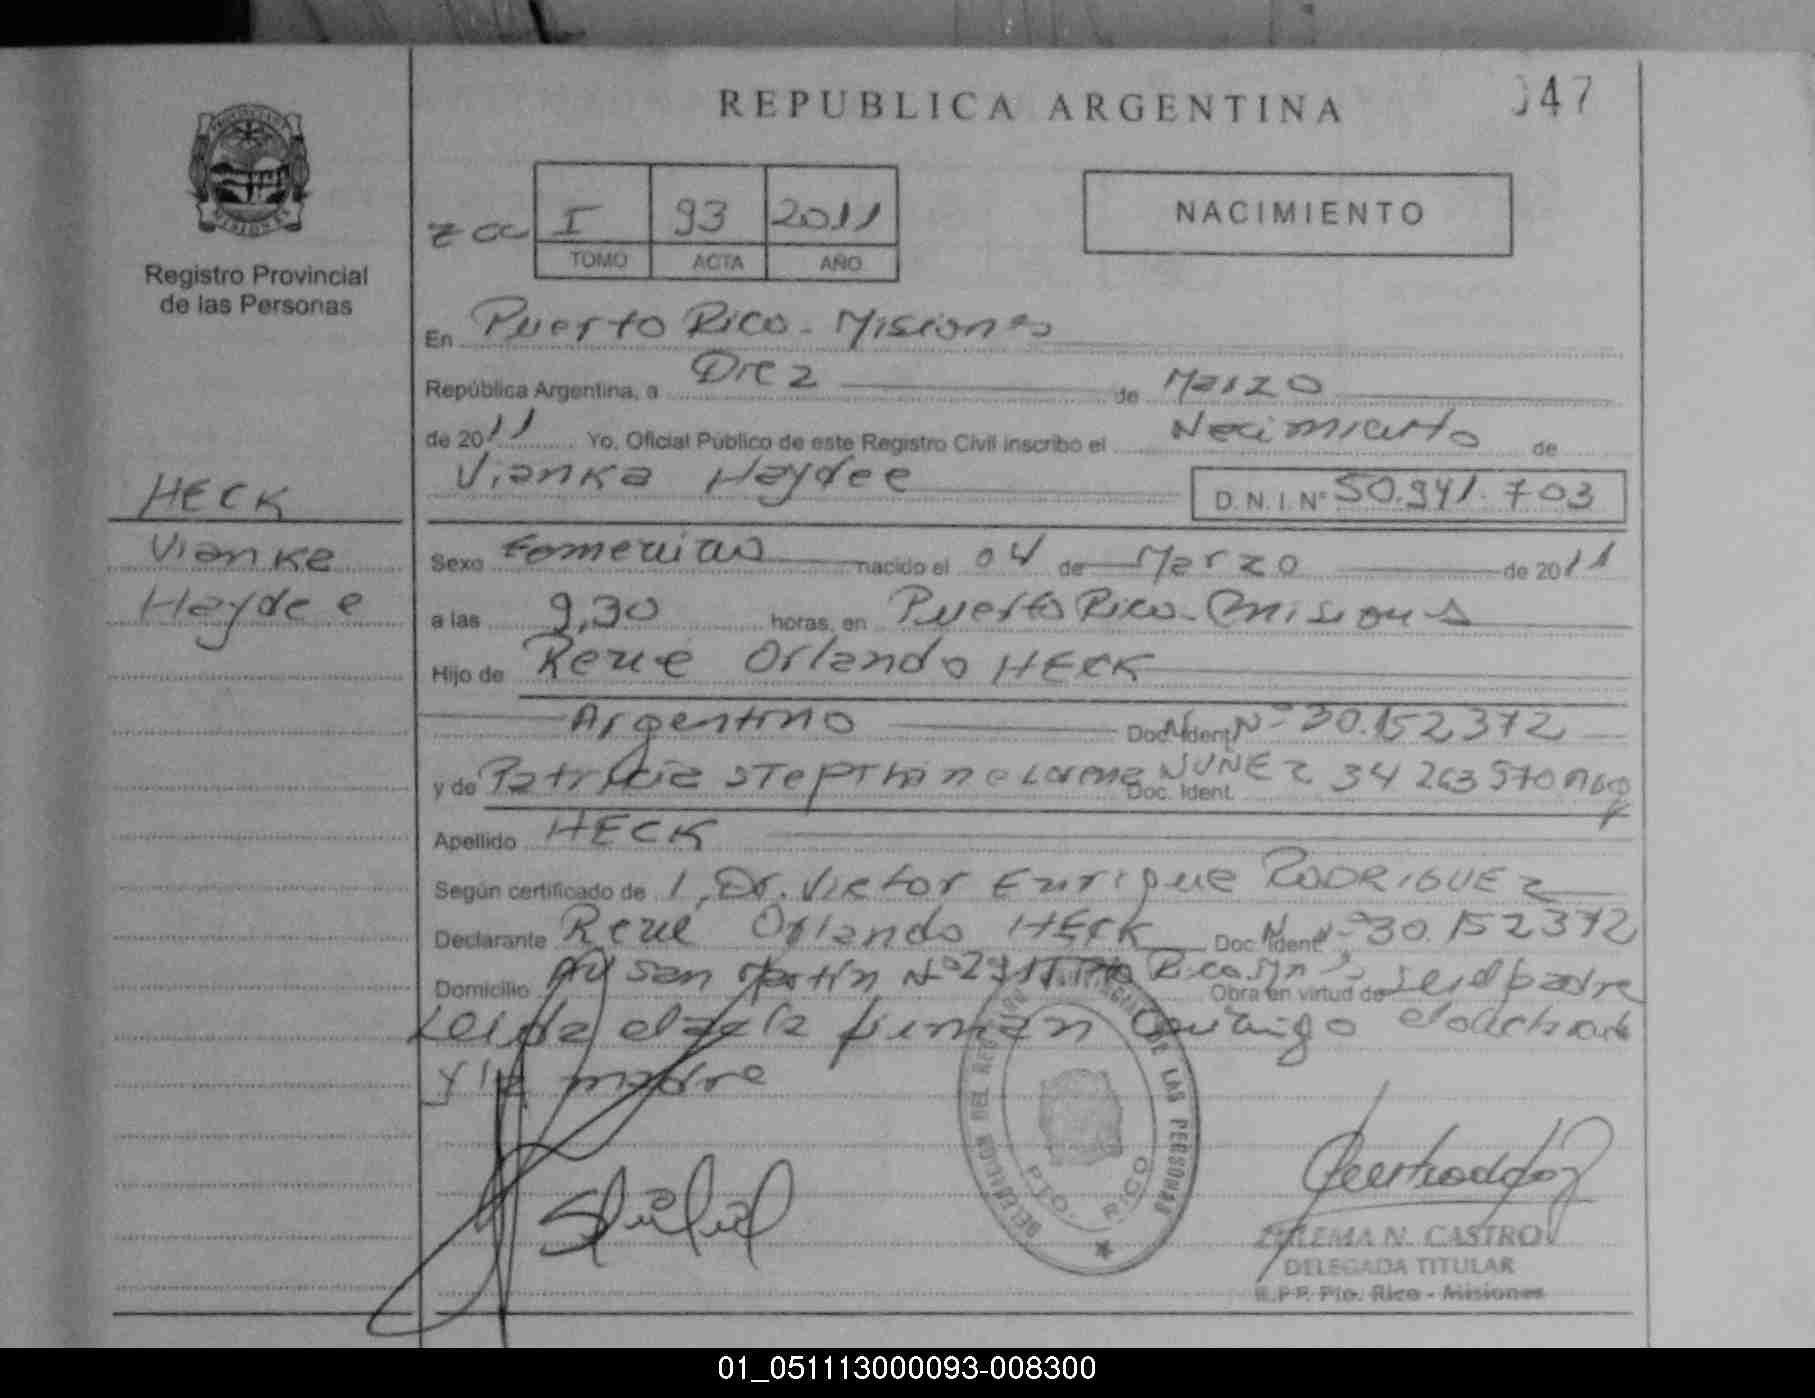 REPUBLICA ARGENTINA
047
Registro Provincial
de las Personas
I 93 2011
TOMO ACTA AÑO
NACIMIENTO
En Puerto Rico - Misiones
República Argentina, a Diez de Marzo
de 2011 Yo, Oficial Público de este Registro Civil inscribo el Nacimiento de
Vianka Haydee D.N.I. Nº 50.941.703
HECK
Vianka
Haydee
Sexo Femenino nacido el 04 de Marzo de 2011
a las 9,30 horas, en Puerto Rico - Misiones
Hijo de René Orlando HECK
Argentino Doc. Ident. Nº 30.152372
y de Patricia Stepthine Lorena NUÑEZ Doc. Ident. 34 263 570
Apellido HECK
Según certificado de 1, Dr. Victor Enrique RODRIGUEZ
Declarante René Orlando HECK Doc. Ident. Nº 30.152372
Domicilio Av San Martín Nº Pto Rico Obra en virtud de ser el padre
Leida el acta firman conmigo el declarante
y la madre
DELEGACION DEL REGISTRO DE LAS PERSONAS
PTO. RICO
ZULEMA N. CASTRO
DELEGADA TITULAR
R.P.P. Pto. Rico - Misiones
01_051113000093-008300